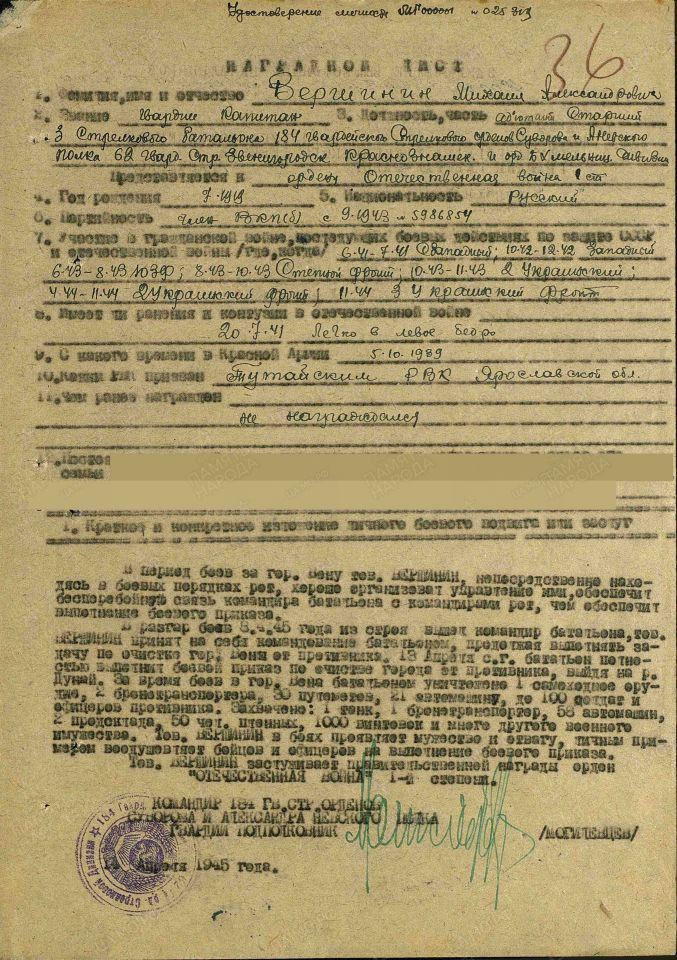 Удостоверение личности № 025
36
НАГРАДНОЙ ЛИСТ
1. Фамилия, имя и отчество Вершинин Михаил Александрович
2. Звание Гвардии Капитан 3. Должность, часть адъютант Старший
3 Стрелкового Батальона 184 Гвардейского Стрелкового орденов Суворова и А.Невского
полка 62 Гвард. Стр. Звенигородск. Краснознамен. и орд. Б.Хмельниц. дивизии
Представляется к ордену Отечественная война 1 ст
4. Год рождения 7-1919 5. Национальность Русский
6. Партийность член ВКП(б) с 9-1943 № 5986854
7. Участие в гражданской войне, последующих боевых действиях по защите СССР
и отечественной войне /где, когда/ 6-41-7-41 Западной; 10-42-12-42 Западной
6-43-8-43 ЮЗФ; 8-43-10-43 Степной фронт; 10-43-11-43 2 Украинский;
4-44-11-44 2 Украинский фронт; 11-44 3 Украинский Фронт
8. Имеет ли ранения и контузии в отечественной войне
20.7.41 Легко в левое бедро
9. С какого времени в Красной Армии 5.10.1939
10. Каким РВК призван Тутайским РВК Ярославской обл.
11. Чем ранее награжден
не награждался
12. Постоя
семьи
1. Краткое и конкретное изложение личного боевого подвига или заслуг
В период боев за гор. Вену тов. ВЕРШИНИН, непосредственно нахо-
дясь в боевых порядках рот, хорошо организовал управление ими, обеспечил
бесперебойную связь командира батальона с командирами рот, чем обеспечил
выполнение боевого приказа.
В разгар боев 8.4.45 года из строя вышел командир батальона, тов.
ВЕРШИНИН принял на себя командование батальоном, продолжая выполнять за-
дачу по очистке гор. Вены от противника. 13 Апреля с.г. батальон полно-
стью выполнил боевой приказ по очистке города от противника, выйдя на р.
Дунай. За время боев в гор. Вена батальоном уничтожено 1 самоходное ору-
дие, 2 бронетранспортера, 30 пулеметов, 21 автомашину, до 100 солдат и
офицеров противника. Захвачено: 1 танк, 1 бронетранспортер, 58 автомашин,
2 продсклада, 50 чел. пленных, 1000 винтовок и много другого военного
имущества. Тов. ВЕРШИНИН в боях проявляет мужество и отвагу, личным при-
мером воодушевляет бойцов и офицеров на выполнение боевого приказа.
Тов. ВЕРШИНИН заслуживает правительственной награды орден
"ОТЕЧЕСТВЕННАЯ ВОЙНА" 1-й степени.
КОМАНДИР 184 ГВ.СТР.ОРДЕНОВ
СУВОРОВА И АЛЕКСАНДРА НЕВСКОГО ПОЛКА
ГВАРДИИ ПОДПОЛКОВНИК /МОГИЛЕВЦЕВ/
Апреля 1945 года.